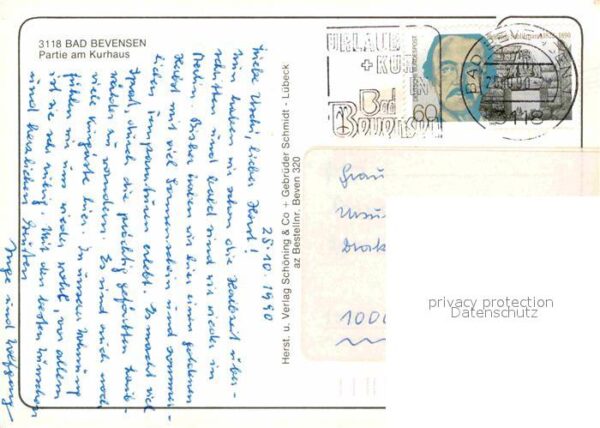 3118 BAD BEVENSEN
Partie am Kurhaus
URLAUB
+ KUR
IN
Bad
Bevensen
DEUTSCHE BUNDESPOST
60
BAD BEVENSEN
3118
25.10.1990
Liebe Uschi, lieber Horst!
Nun haben wir schon die Halbzeit über-
schritten und bald sind wir wieder in
Berlin. Bisher haben wir hier einen goldenen
Herbst mit viel Sonnenschein und sommer-
lichen Temperaturen erlebt. Es macht viel
Spaß, durch die prächtig gefärbten Laub-
wälder zu wandern. Es sind auch noch
viele Kurgäste hier. In unserer Wohnung
fühlen wir uns wieder wohl, vor allem
ist sie sehr ruhig. Mit den besten Wünschen
und herzlichen Grüßen
Inge und Wolfgang
Herst. u. Verlag Schöning & Co + Gebrüder Schmidt - Lübeck
az Bestellnr. Beven 320
Frau
1000
privacy protection
Datenschutz